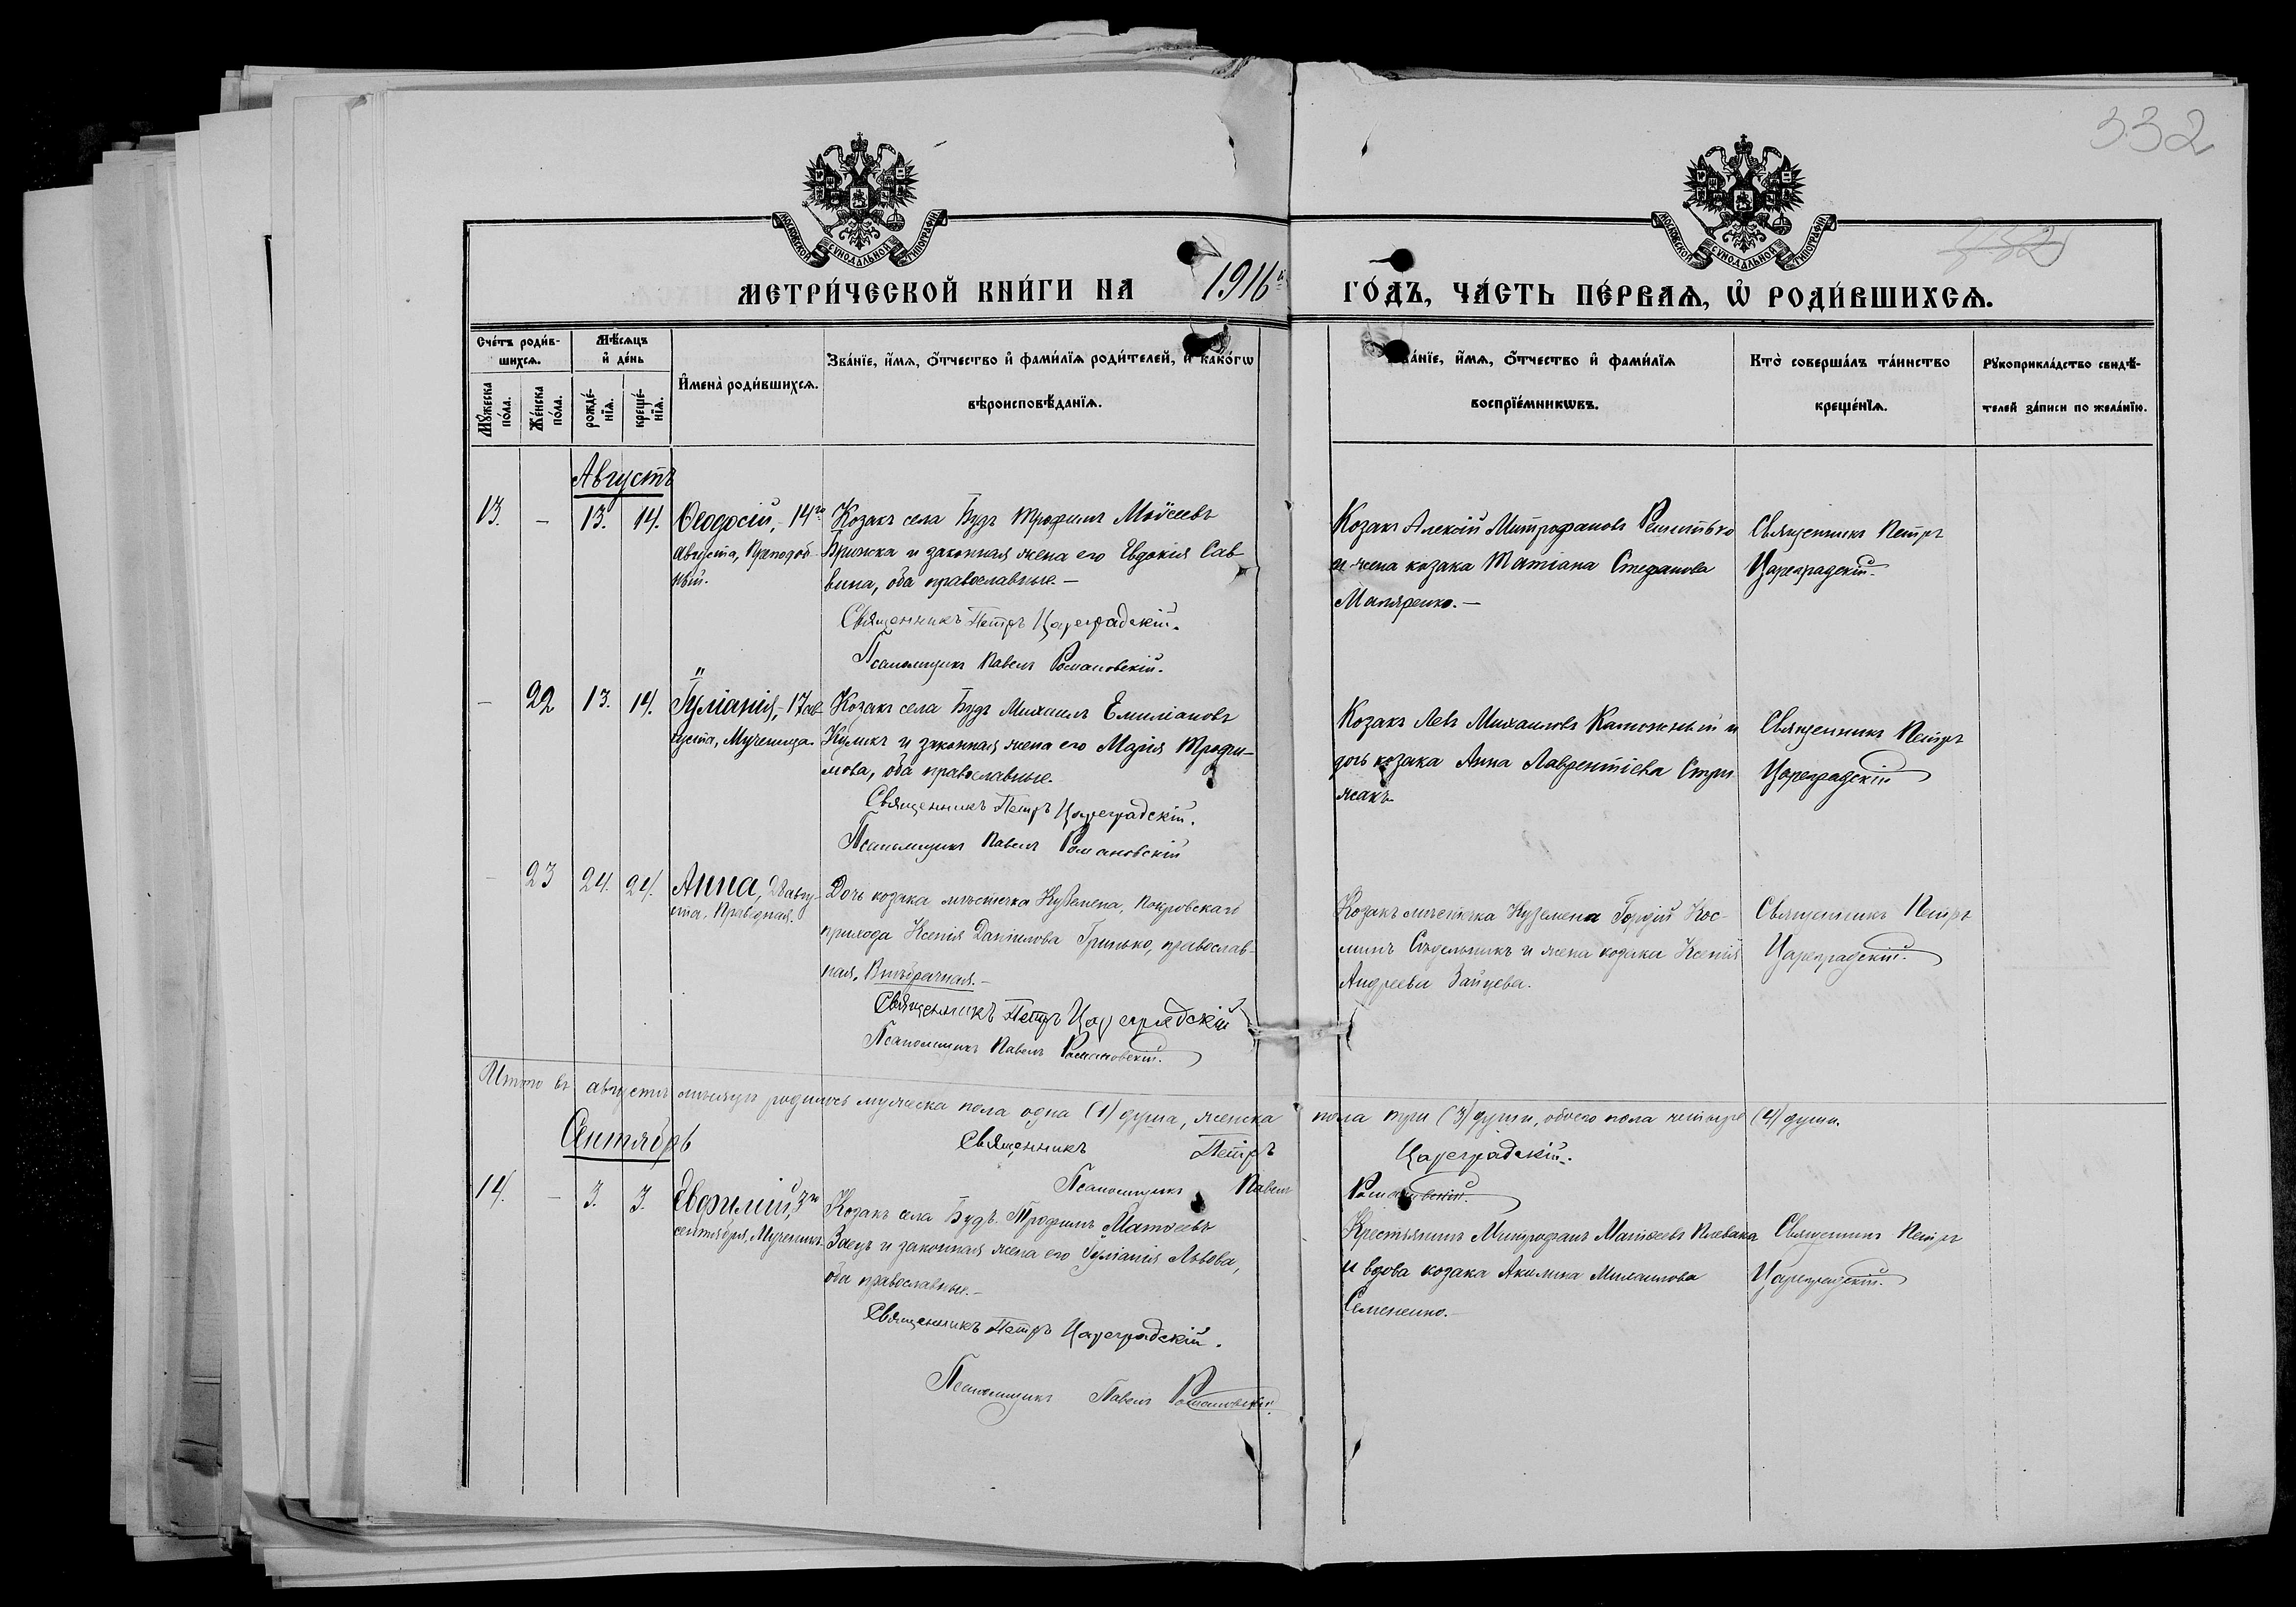 332
МОСКОВСКОЙ СѴНОДАЛЬНОЙ ТИПОГРАФІИ
МОСКОВСКОЙ СѴНОДАЛЬНОЙ ТИПОГРАФІИ
332
МЕТРИ́ЧЕСКОЙ КНИ́ГИ НА 1916й ГО́ДЪ, ЧА́СТЬ ПЕ́РВАѦ, Ѡ҆ РОДИ́ВШИХСѦ.
Сче́тъ роди́в-
шихсѧ.
Мꙋ́жеска
по́ла.
Же́нска
по́ла.
Мѣ́сѧцъ
и҆ де́нь
рожде́-
нїѧ.
креще́-
нїѧ.
И҆мена̀ роди́вшихсѧ.
Зва́нїе, и҆́мѧ, ѻ҆́тчество и҆ фами́лїѧ роди́телей, и҆ како́гѡ
вѣроисповѣ́данїѧ.
Зва́нїе, и҆́мѧ, ѻ҆́тчество и҆ фами́лїѧ
воспрїе́мникѡвъ.
Кто̀ соверша́лъ та́инство
креще́нїѧ.
Рꙋкоприкла́дство свидѣ́-
телей за́писи по жела́нїю.
Августъ
13. - 13. 14. Ѳеодосій, - 14го
августа, Преподоб-
ный.
Козакъ села Будъ Трофимъ Моѵсеевъ
Брижка и законная жена его Евдокія Сав-
вина, оба православные. -
Священникъ Петръ Цареградскій.
Псаломщикъ Павелъ Романовскій.
Козакъ Алексій Митрофановъ Решетько
и жена козака Татіана Стефанова
Маляренко. -
Священникъ Петръ
Цареградскій.
- 22 13. 14. Іуліанія, - 17 ав-
густа, Мученица.
Козакъ села Будъ Михаилъ Емиліановъ
Куликъ и законная жена его Марія Трофи-
мова, оба православные.
Священникъ Петръ Цареградскій.
Псаломщикъ Павелъ Романовскій
Козакъ Левъ Михаиловъ Калюжный и
дочь козака Анна Лаврентіева Стри-
жакъ.
Священникъ Петръ
Цареградскій
- 23 24. 24. Анна, 28 авгу-
ста, Праведная.
Дочь козака мѣстечка Куземена, Покровскаго
прихода Ксенія Даніилова Гринько, православ-
ная, Внѣбрачная. -
Священникъ Петръ Цареградскій
Псаломщикъ Павелъ Романовскій.
Козакъ мѣстечка Куземена Гордій Кос-
минъ Сѣдельникъ и жена козака Ксенія
Андреева Зайцева.
Священникъ Петръ
Цареградскій.
Итого въ августѣ мѣсяцѣ родилось мужеска пола одна (1) душа, женска пола три (3) души, обоего пола четыре (4) души.
Священникъ Петръ Цареградскій.
Псаломщикъ Павелъ Романовскій.
Сентябрь
14. - 3. 3. Евфимій, 3го
сентября, Мученикъ.
Козакъ села Будъ Трофимъ Матѳеевъ
Заецъ и законная жена его Іуліанія Львова,
оба православные. -
Священникъ Петръ Цареградскій.
Псаломщикъ Павелъ Романовскій.
Крестьянинъ Митрофанъ Матѳеевъ Плевака
и вдова козака Акилина Михаилова
Семененко. -
Священникъ Петръ
Цареградскій.